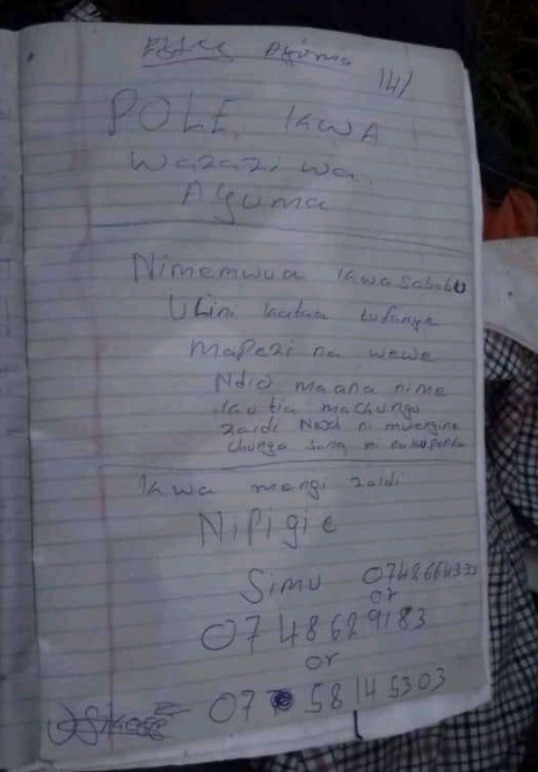 Ayuma
141
POLE KWA
wazazi wa
Ayuma
Nimemwua kwasababu
Ulini kataa tufanye
Mapezi na wewe
Ndio maana nime
kutia machungu
zaidi Next ni mwengine
chunga sana mi nakupenda
Kwa mengi zaidi
Nipigie
Simu 0742664333
or
0748629183
or
07 58145303